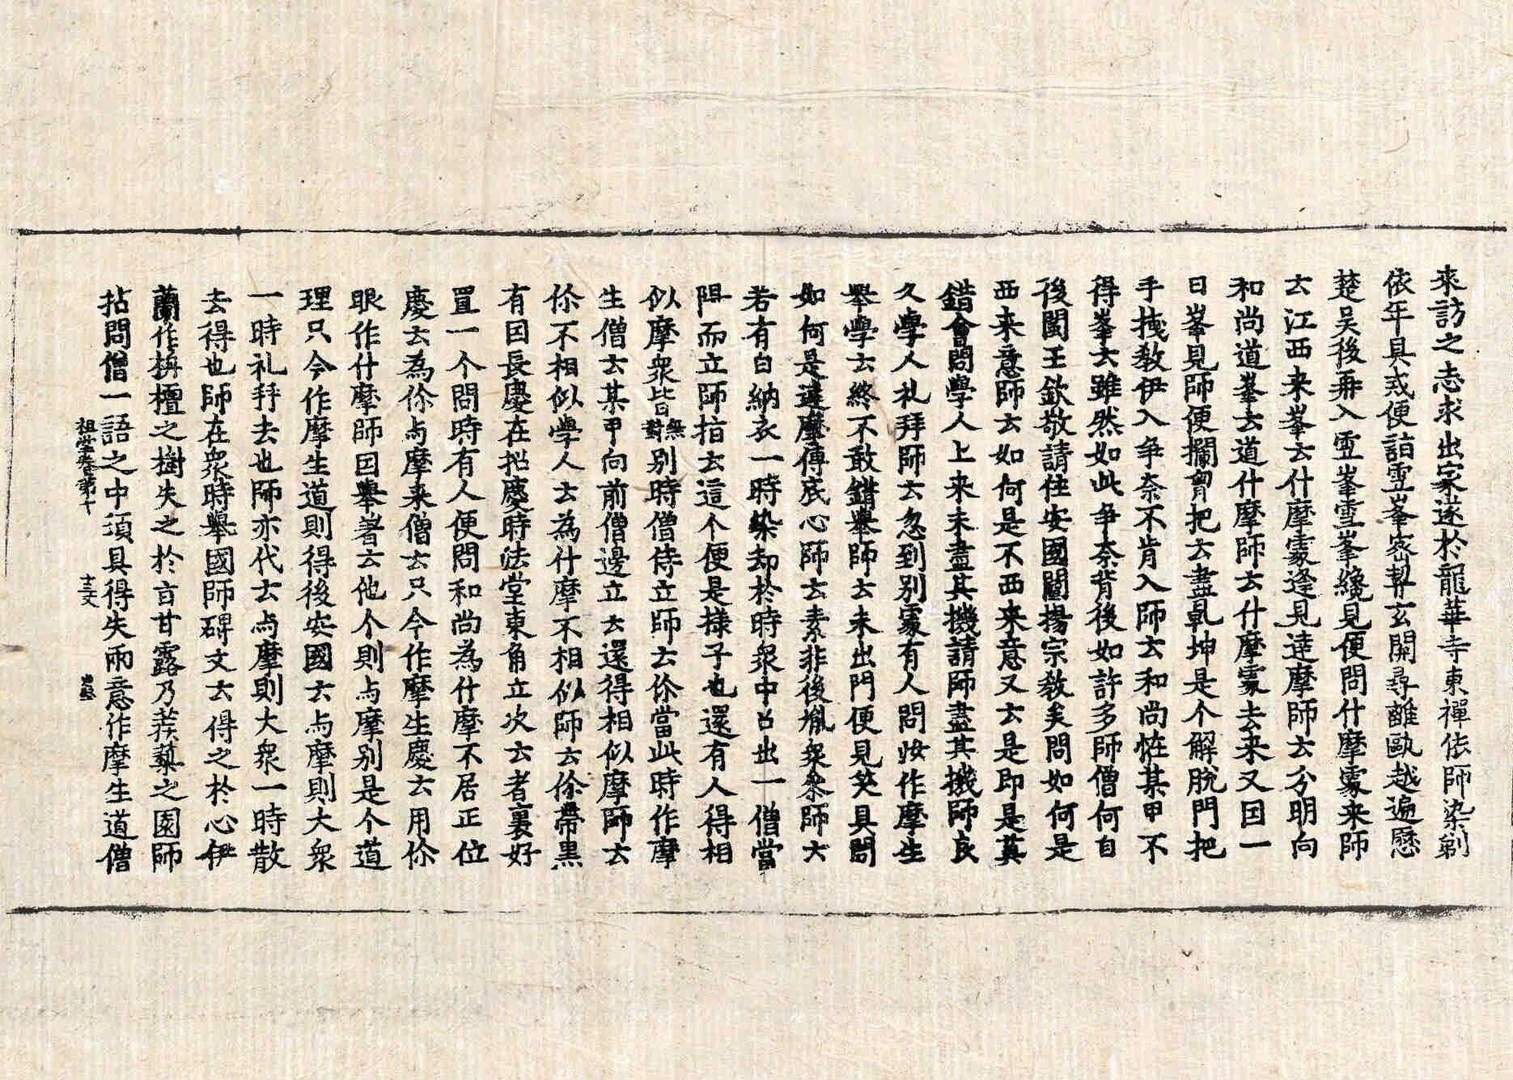 來訪之志求出家遂於龍華寺東禪依師染剃
依年具戒便詣雪峯密契玄關尋離甌越遍歷
楚吳後再入雪峯雪峯纔見便問什摩處來師
云江西来峯云什摩處逢見達摩師云分明向
和尚道峯云道什摩師云什摩處去来又因一
日峯見師便攔胷把云盡乹坤是个解脫門把
手拽教伊入争奈不肯入師云和尚恠某甲不
得峯云雖然如此争奈背後如許多師僧何自
後閩王欽敬請住安國闡揚宗教矣問如何是
西来意師云如何是不西来意又云是即是莫
錯會問學人上来未盡其機請師盡其機師良
久學人礼拜師云忽到别處有人問汝作摩生
舉學云終不敢錯舉師云未出門便見笑具問
如何是達摩傳底心師云素非後胤衆叅師云
若有白納衣一時染却於時衆中召出一僧當
陽而立師指云這个便是樣子也還有人得相
似摩衆皆無對别時僧侍立師云你當此時作摩
生僧云某甲向前僧邊立云還得相似摩師云
你不相似學人云為什摩不相似師云你帶黑
有因長慶在招慶時法堂東角立次云者裏好
置一个問時有人便問和尚為什摩不居正位
慶云為你与摩来僧云只今作摩生慶云用你
眼作什摩師因舉著云他个則与摩别是个道
理只今作摩生道則得後安國云与摩則大衆
一時礼拜去也師亦代云与摩則大衆一時散
去得也師在衆時舉國師碑文云得之於心伊
蘭作栴檀之樹失之於言甘露乃蒺蔾之園師
拈問僧一語之中須具得失兩意作摩生道僧
祖堂卷第十 十三丈